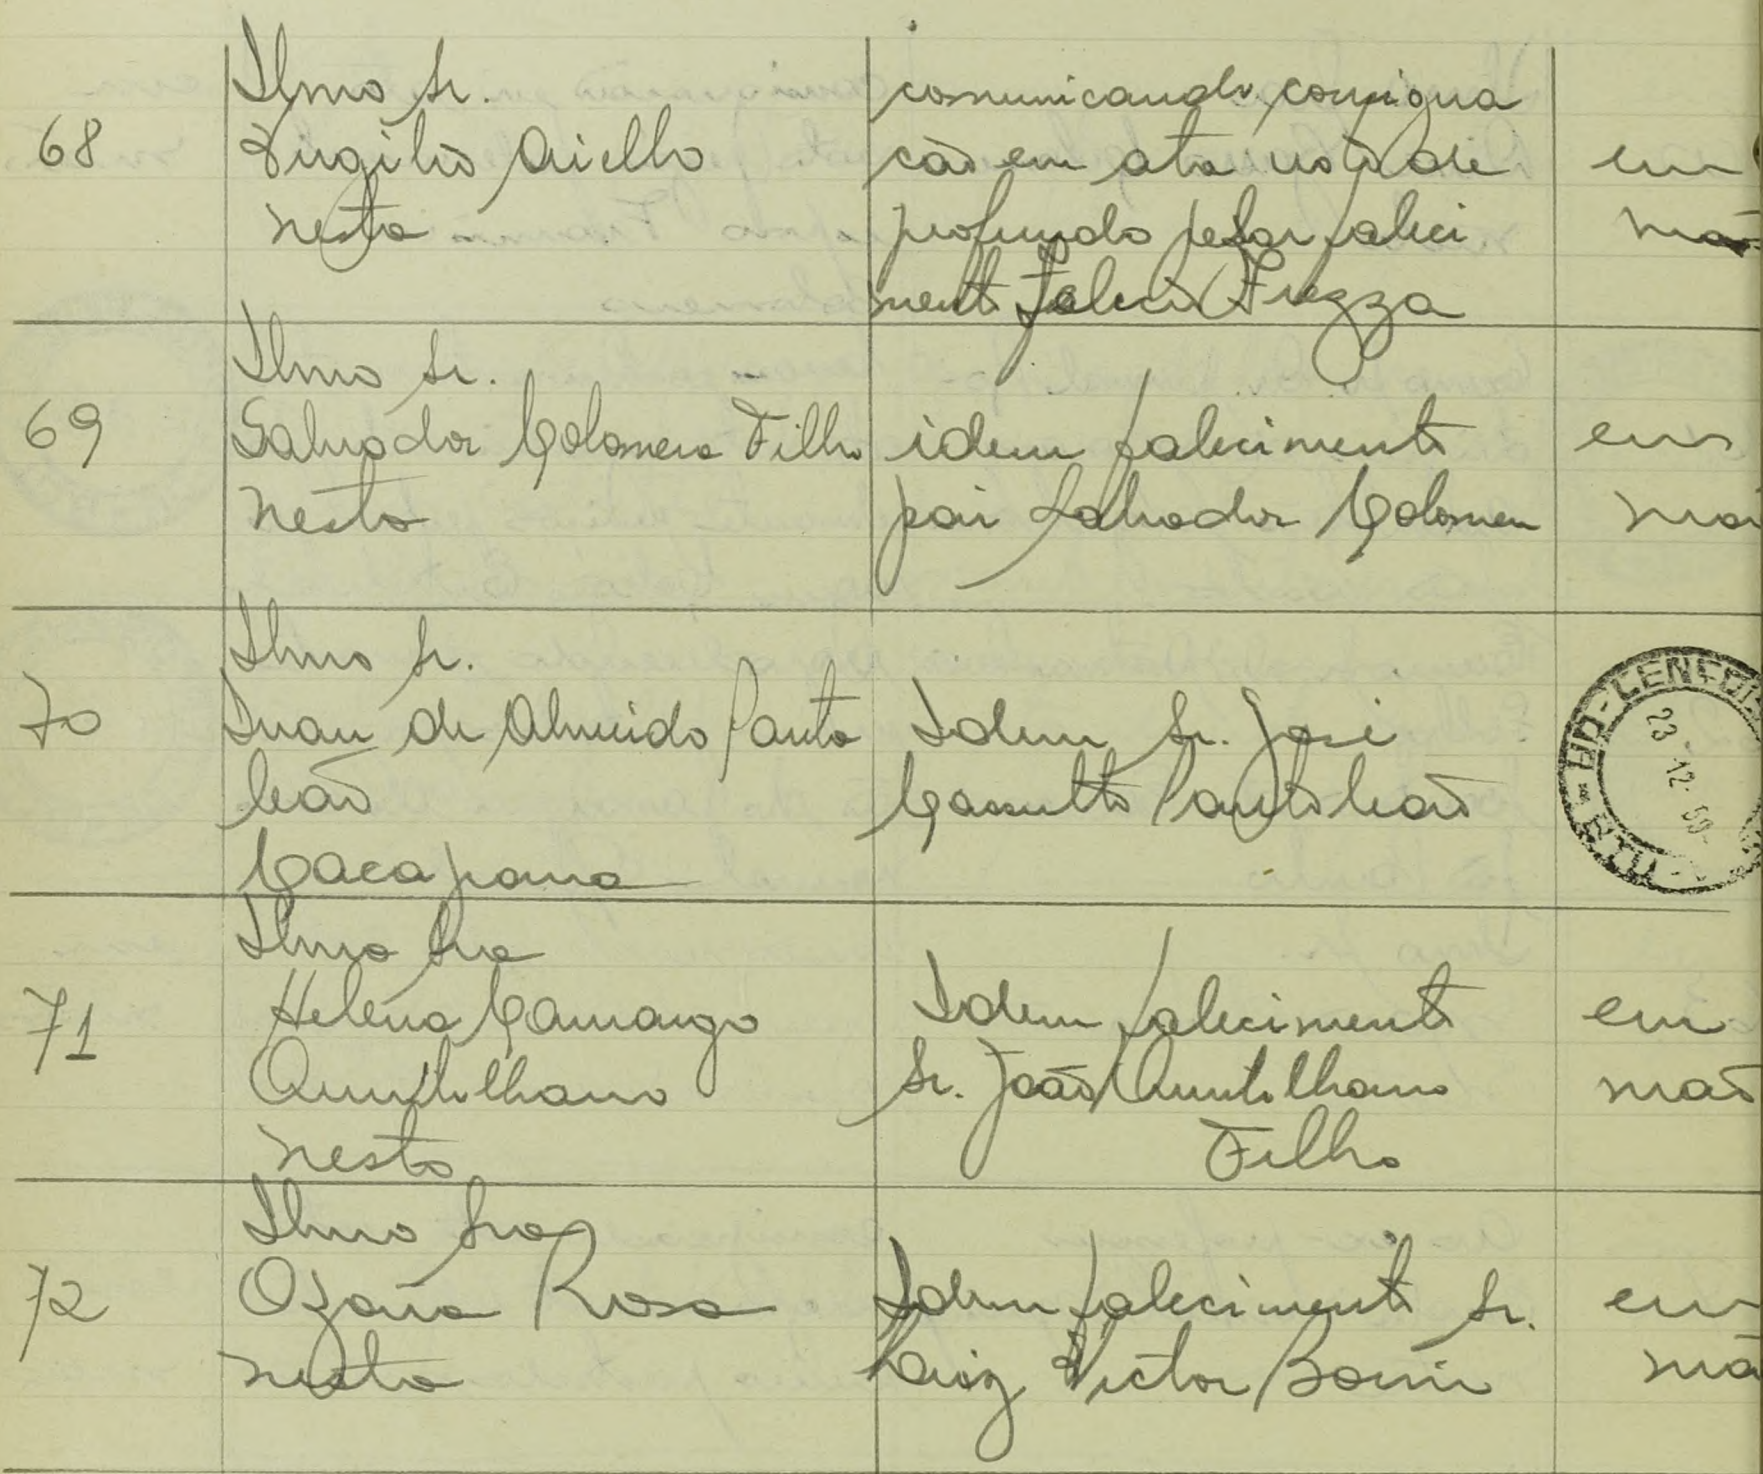 Ilmo Sr.
68 Virgilio Aiello
nesta
comunicando consigna
ção em ata voto de
profundo pesar faleci
mento Felicio Frezza
em
mão
Ilmo Sr.
69 Salvador Colomera Filho
nesta
idem falecimento
pai Salvador Colomera
em
mão
Ilmo Sr.
70 Ivan de Almeida Panta
leão
Caçapava
Idem Sr. José
Pantaleão
23-12-
Ilma Sra
71 Helena Camargo
Quintilhano
nesta
Idem falecimento
Sr. João Quintilhano
Filho
em
mão
Ilma Sra
72 Ozana Rosa
nesta
Idem falecimento Sr.
Luiz Victor
em
mão